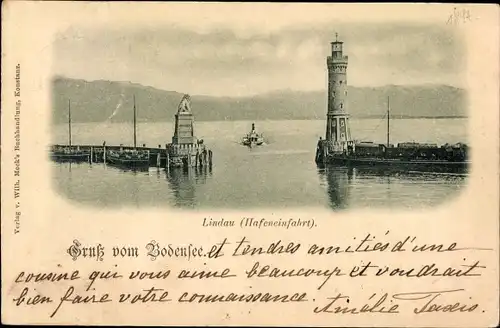 Verlag v. Wilh. Meck's Buchhandlung, Konstanz.
Lindau (Hafeneinfahrt).
Gruß vom Bodensee. et tendres amitiés d'une
cousine qui vous aime beaucoup et voudrait
bien faire votre connaissance.
Amélie Taxis.